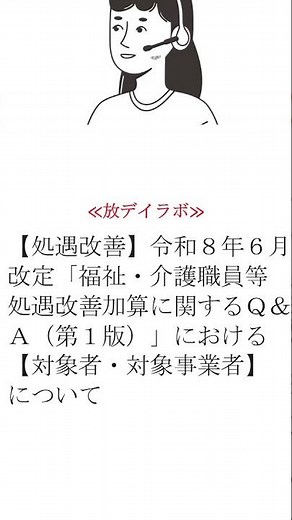 ≪放デイラボ≫
【処遇改善】令和８年６月
改定「福祉・介護職員等
処遇改善加算に関するＱ＆
Ａ（第１版）」における
【対象者・対象事業者】
について